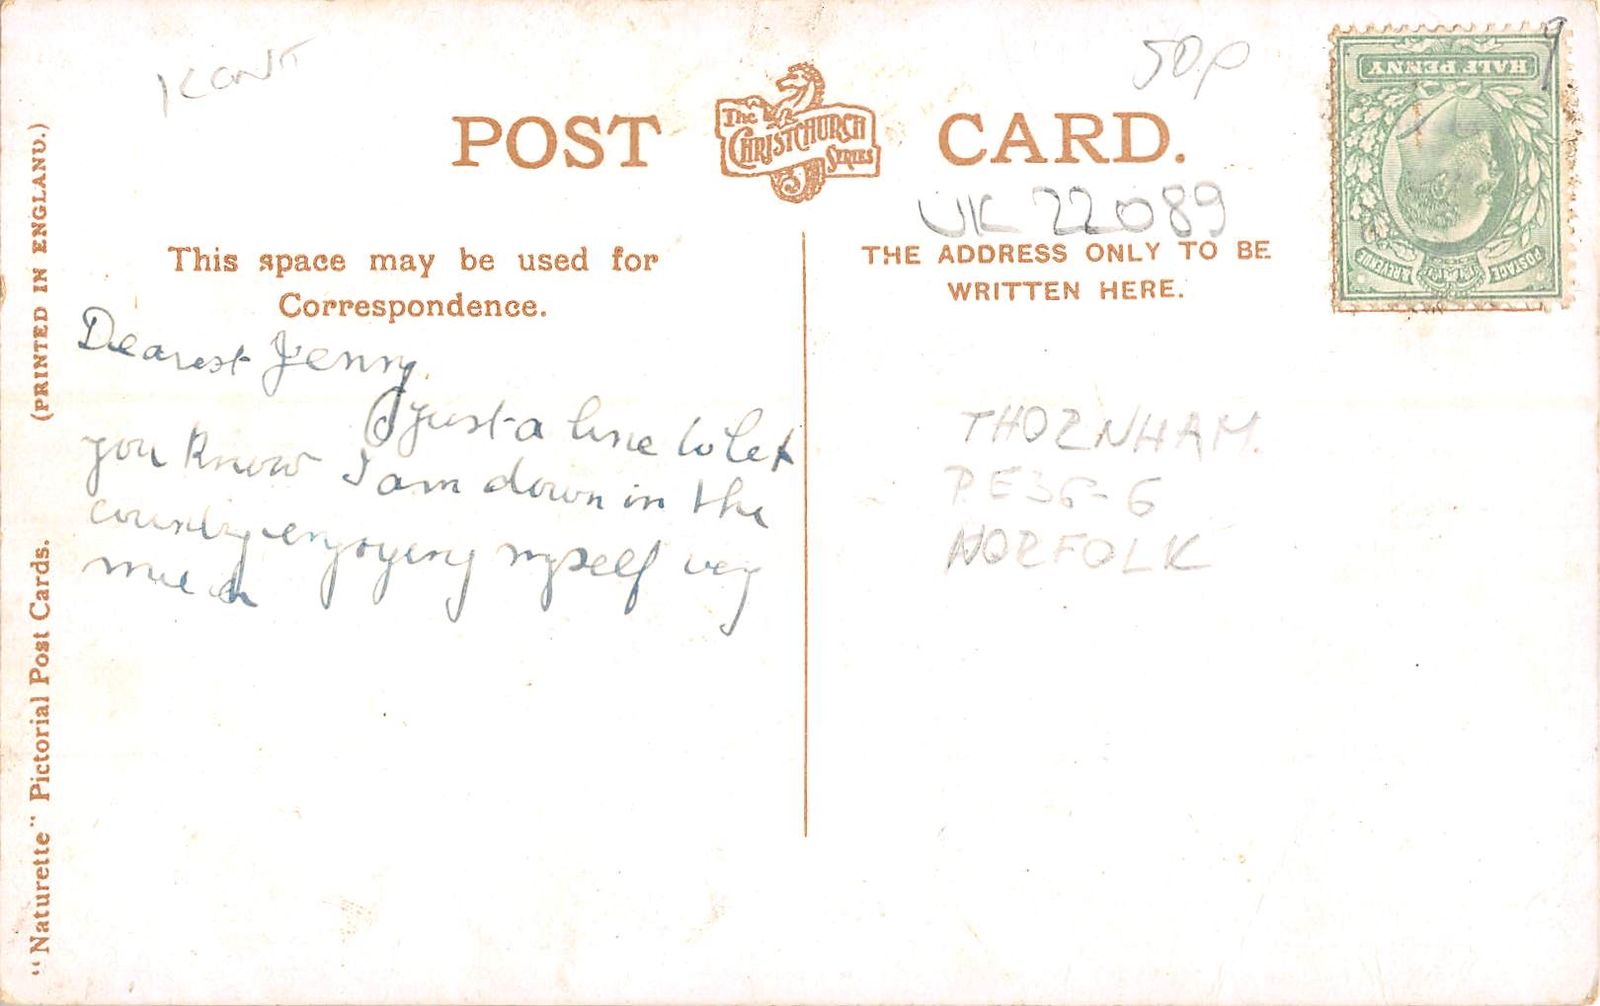 KENT
50p
POST CARD.
The
CHRISTCHURCH
SERIES
HALF PENNY
POSTAGE & REVENUE
UK 22089
This space may be used for
Correspondence.
THE ADDRESS ONLY TO BE
WRITTEN HERE.
Dearest Jenny.
Just a line to let
you know I am down in the
country enjoying myself very
much
THORNHAM.
PE36-6
NORFOLK
"Naturette" Pictorial Post Cards. (PRINTED IN ENGLAND.)